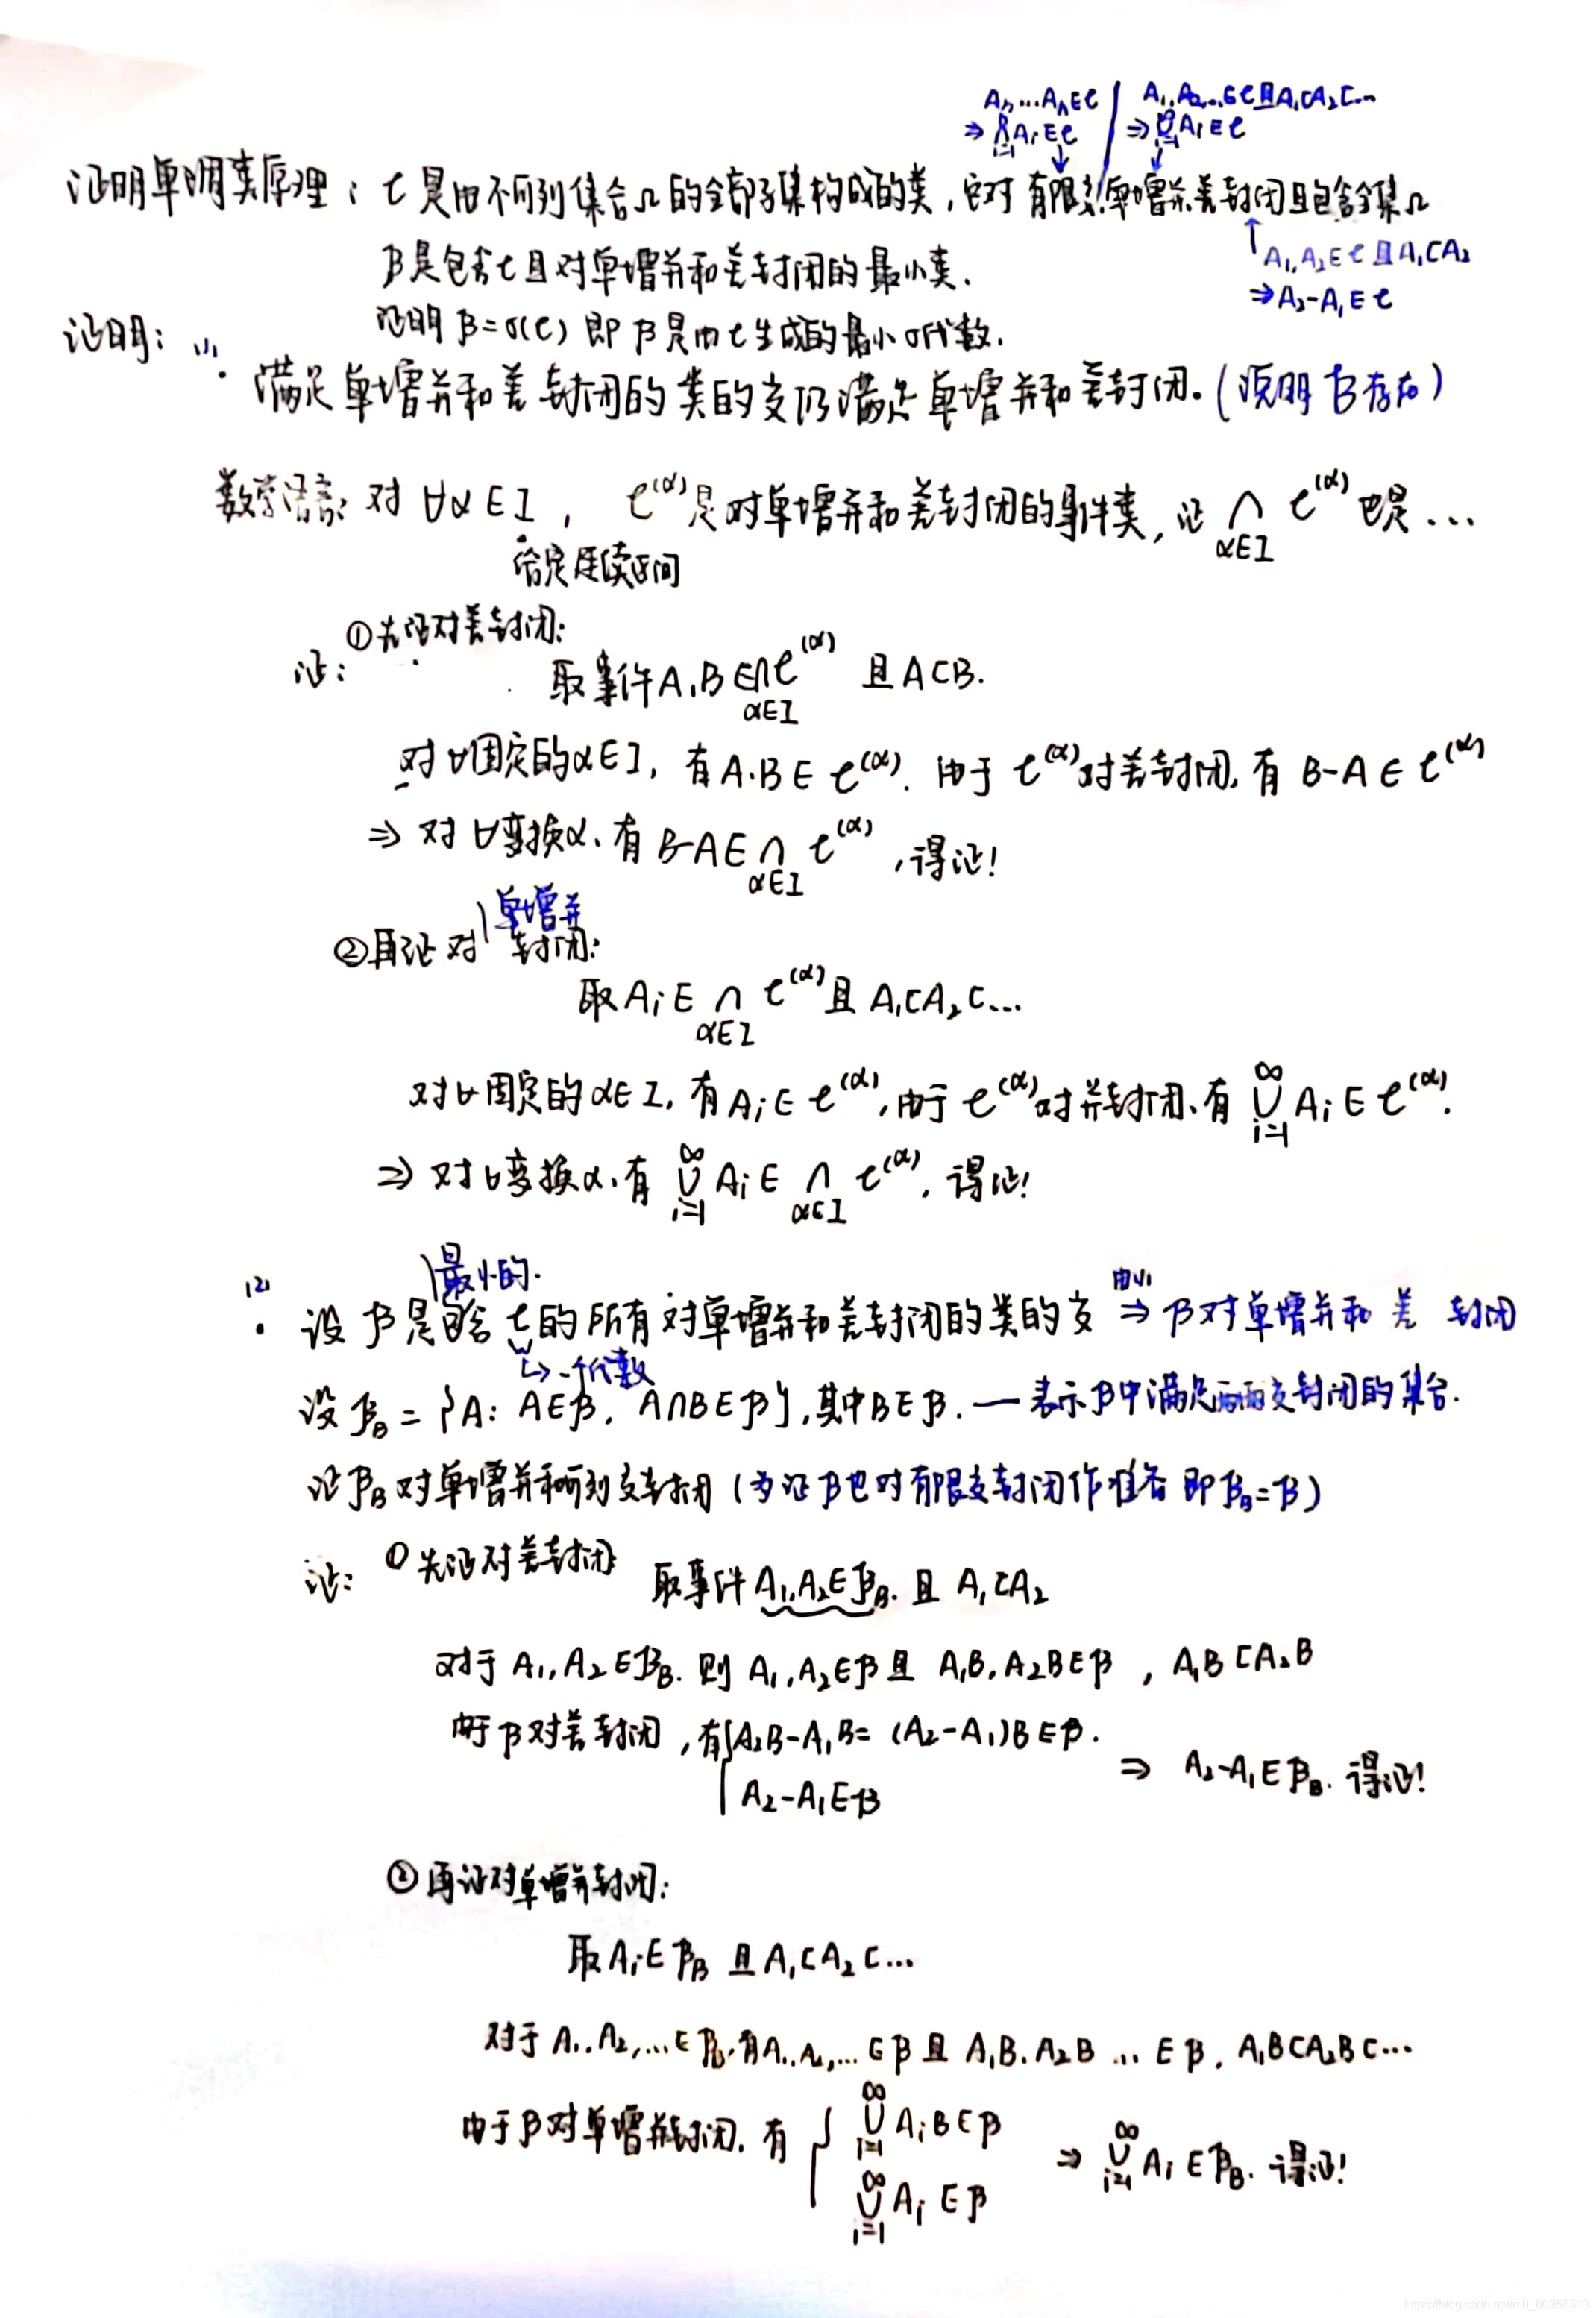 A₁,…AₙEC ⇒ ∩Aᵢ∈C
A₁,A₂…∈C且A₁⊂A₂⊂… ⇒ ∪Aᵢ∈C
证明单调类原理:C是由不可列集合Ω的全部子集构成的类,它对有限交、单增并、差封闭且包含全集Ω
A₁,A₂∈C且A₁⊂A₂
⇒A₂-A₁∈C
β是包含C且对单增并和差封闭的最小类.
证明β=σ(C) 即β是由C生成的最小σ代数.
证明:(1)
满足单增并和差封闭的类的交仍满足单增并和差封闭。(说明β存在)
数学语言:对∀α∈I, C^(α)是对单增并和差封闭的事件类,证 ∩_{α∈I} C^(α)也是…
给定连续区间
证:①先证对差封闭:
取事件A,B∈∩_{α∈I} C^(α) 且A⊂B.
对∀固定的α∈I,有A.B∈C^(α).由于C^(α)对差封闭,有B-A∈C^(α)
⇒对∀变换α、有B-A∈∩_{α∈I} C^(α),得证!
②再证对单增并封闭:
取Aᵢ∈∩_{α∈I} C^(α)且A₁⊂A₂⊂…
对∀固定的α∈I,有Aᵢ∈C^(α),由于C^(α)对并封闭、有∪_{i=1}^∞ Aᵢ∈C^(α).
⇒对∀变换α、有∪_{i=1}^∞ Aᵢ∈∩_{α∈I} C^(α),得证!
(2)
最小的.
设β是包含C的所有对单增并和差封闭的类的交 由(1)⇒ β对单增并和差封闭
↳一个代数
设β_B={A: A∈β, A∩B∈β},其中B∈β.—表示β中满足两两交封闭的集合.
证β_B对单增并和可列交封闭(为证β也对有限交封闭作准备 即β_B=β)
证:①先证对差封闭 取事件A₁,A₂∈β_B.且A₁⊂A₂
对于A₁,A₂∈β_B.则A₁,A₂∈β且A₁B,A₂B∈β,A₁B⊂A₂B
由于β对差封闭,有{A₂B-A₁B=(A₂-A₁)B∈β.
A₂-A₁∈β ⇒ A₂-A₁∈β_B.得证!
②再证对单增并封闭:
取Aᵢ∈β_B且A₁⊂A₂⊂…
对于A₁,A₂,…∈β_B,有A₁,A₂,…∈β且A₁B,A₂B…∈β,A₁B⊂A₂B⊂…
由于β对单增并封闭,有{∪_{i=1}^∞ AᵢB∈β
∪_{i=1}^∞ Aᵢ∈β ⇒ ∪_{i=1}^∞ Aᵢ∈β_B.得证!
https://blog.csdn.net/m0_60355313